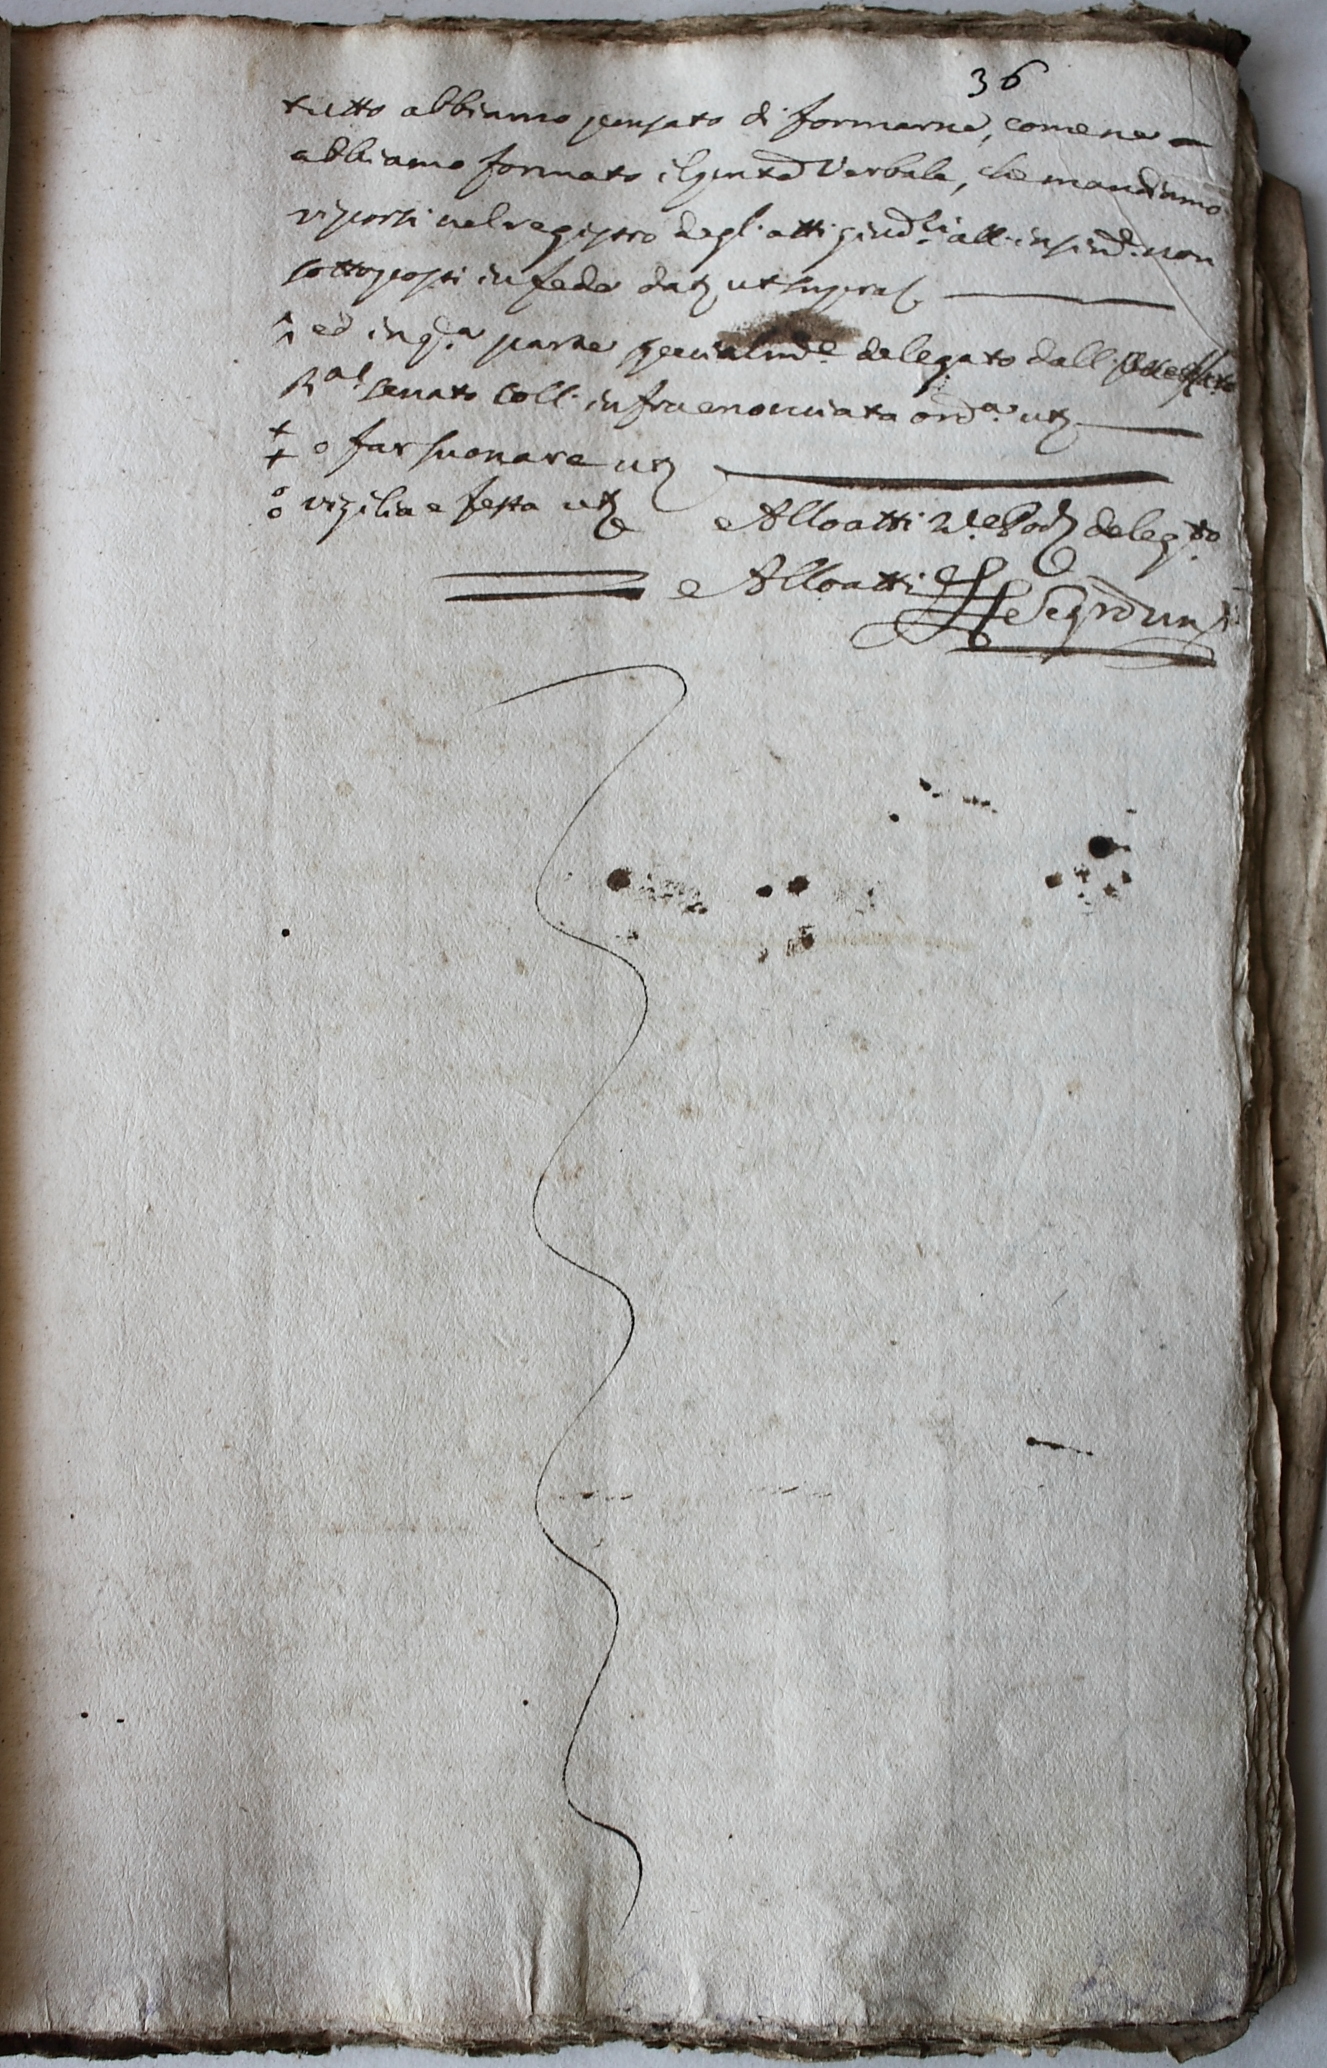 36
tutto abbiamo pensato di formarne, come ne
abbiamo formato il pnte Verbale, che mandiamo
riporsi nel registro degl'atti giud.li all'insin.e non
sottoposti in fede dat. ut supra
ed in q.a parte specialm.e delegato dall'
R.al Senato coll'infraenonciata ord.a ut.
o far suonare ut.
vigilia e festa ut.
Alloatti V.e Pod. deleg.to
Alloatti Segr.